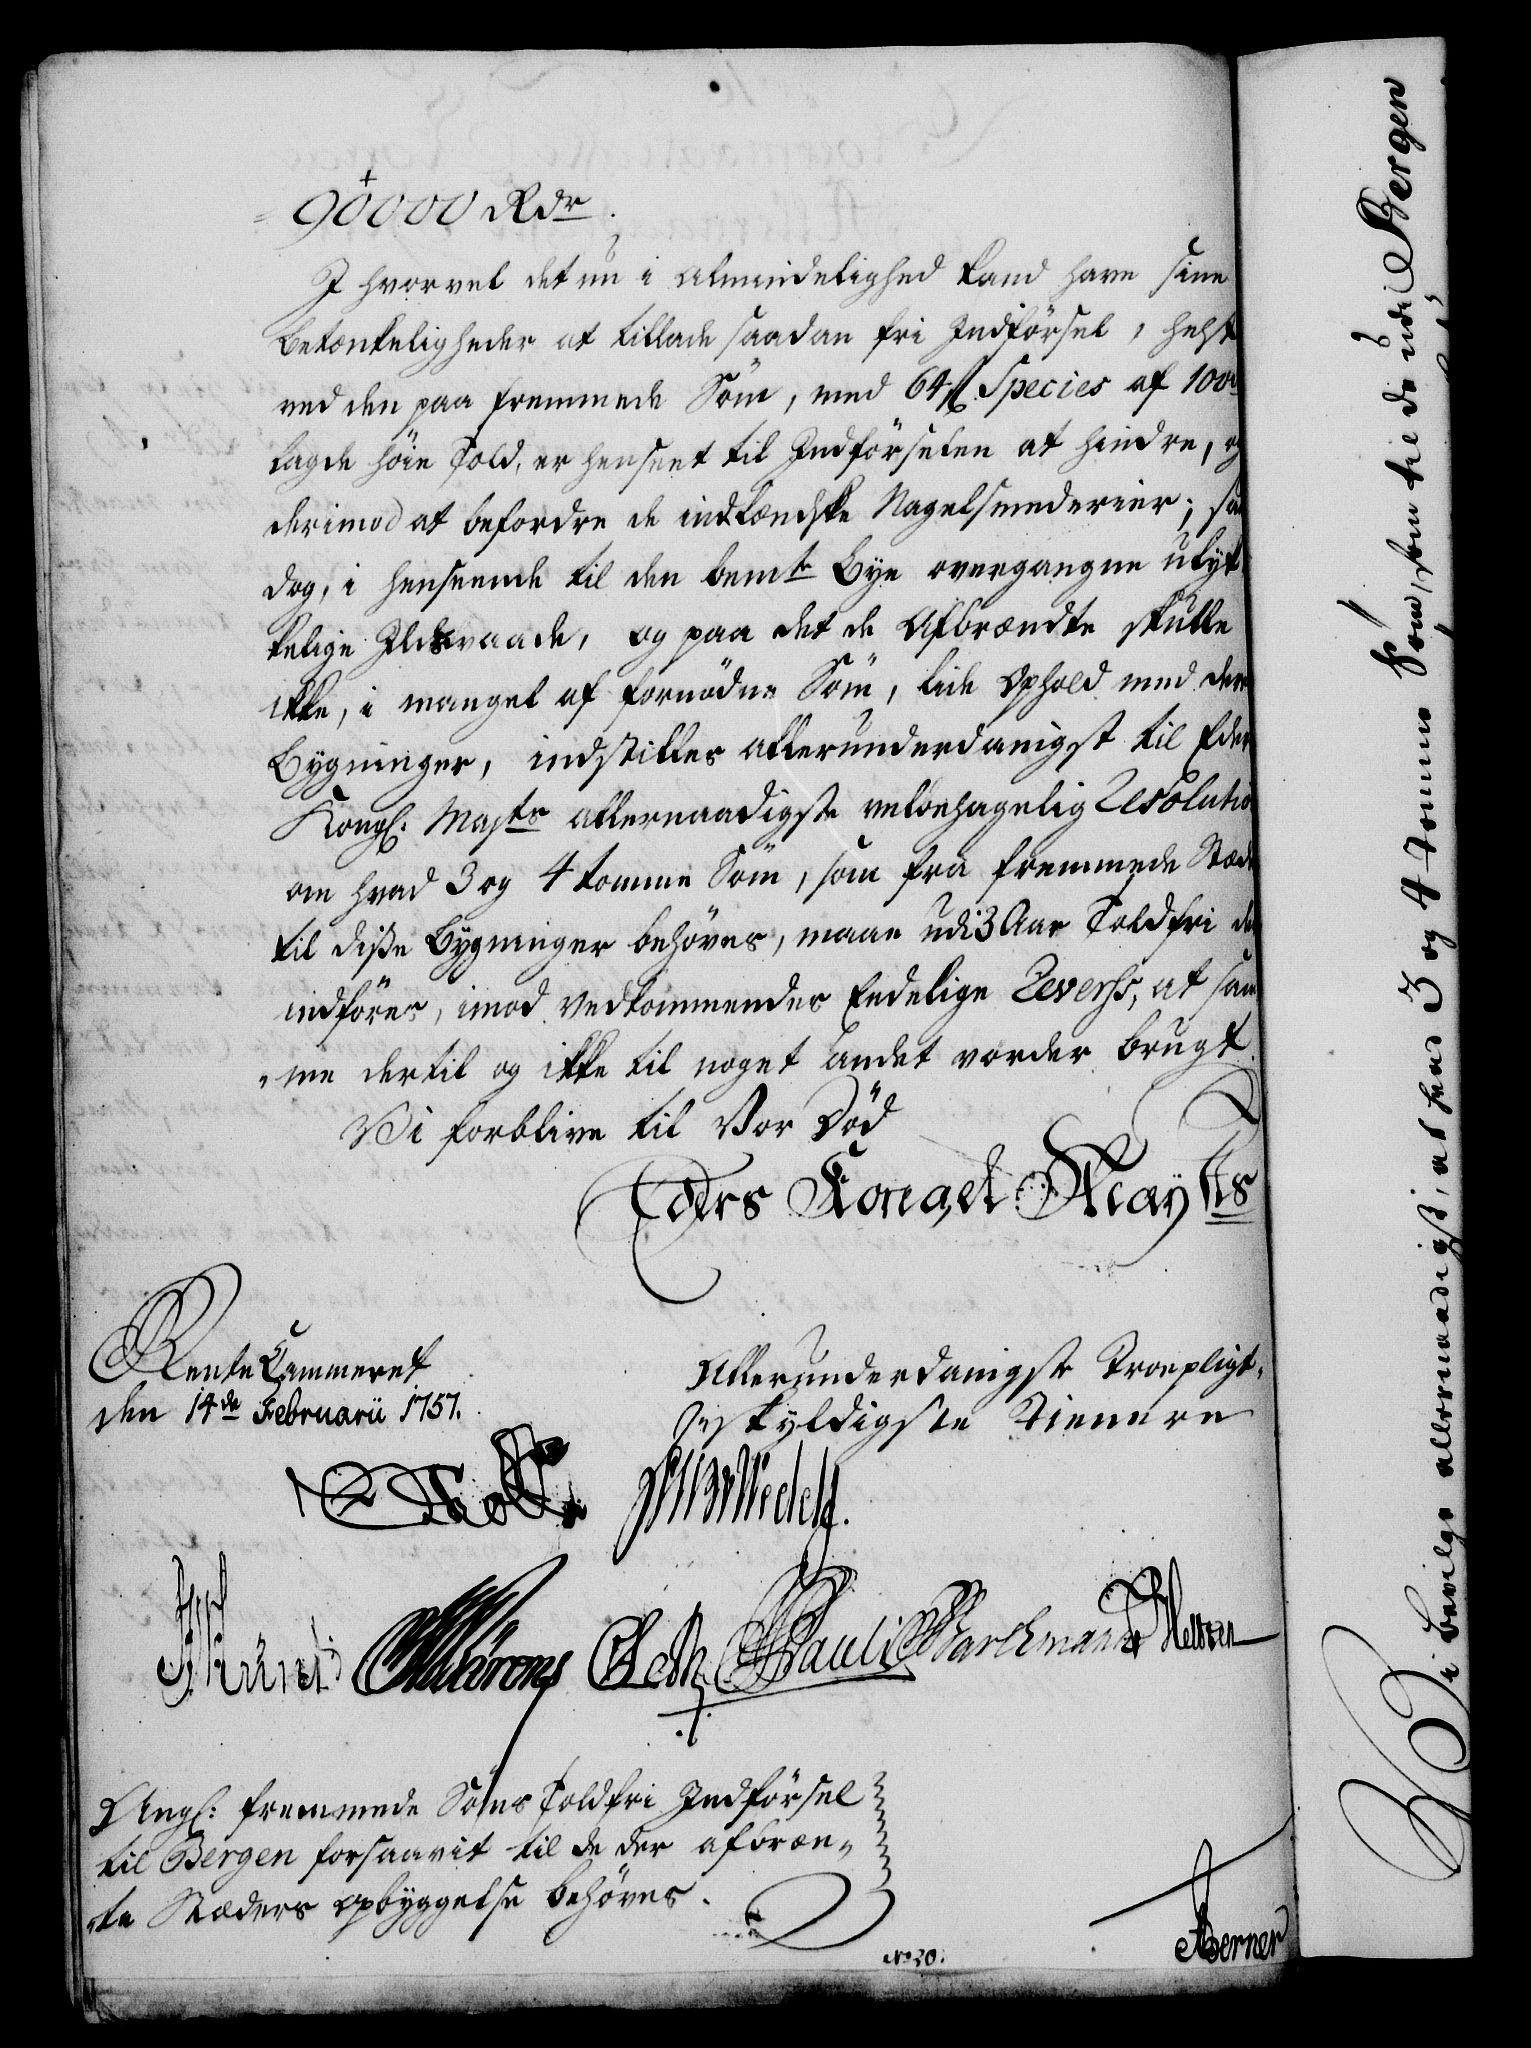 90000 Rdr.
I hvorvel det nu i Almindelighed kand have sine
Betænkeligheder at tillade saadan fri Indførsel, helst
ved den paa fremmede Söm, med 64 ß Species af 100
lagde höie Told, er henseet til Indförselen at hindre, og
derimod at befordre de indlændske Nagelsmederier; saa
dog, i henseende til den bemte Bye overgangne ulyk-
kelige Ildsvaade, og paa det de Afbrændte skulle
ikke, i mangel af fornödne Söm, lide Ophold med deres
Bygninger, indstilles allerunderdanigst til Eders
Kongl. Majts allernaadigste velbehagelig Resolution
om hvad 3 og 4 tomme Söm, som fra fremmede Stæder
til diße Bygninger behöves, maae udi 3 Aar Toldfri der
indföres, imod Vedkommendes Eedelige Revers, at sam-
me dertil og ikke til noget andet vorder brugt
Vi forblive til Vor Död
Eders Kongel Mayts
Rente Cammeret
den 14de Februarii 1757.
Allerunderdanigste Troepligt-
skyldigste Tienere
Holst
Pauli
Barchmann
Ang: fremmede Söms Toldfri Indförsel
til Bergen forsaavit til de der afbræn-
te Stæders opbyggelse behöves.
No 20.
Berner
Vi bevilge allernaadigst, at hvad 3 og 4 tomme Söm, som til de udi Bergen